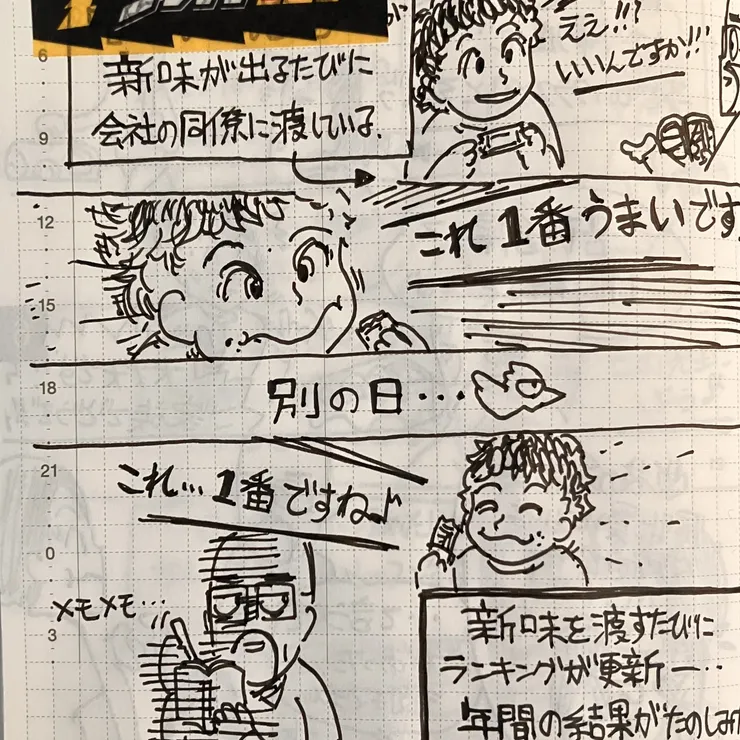 新味が出るたびに
会社の同僚に渡している.
ええ!!?
いいんですか!!!
これ 1番 うまいです
別の日・・・
これ… 1番 ですね♪
メモメモ…
新味を渡すたびに
ランキングが更新ー‥
年間の結果がたのしみ
6
9
12
15
18
21
0
3